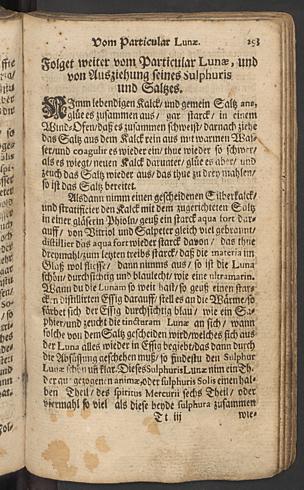 Vom Particular Lunæ. 253
Folget weiter vom Particular Lunæ, und
von Ausziehung seines Sulphuris
und Saltzes.
NImm lebendigen Kalck/ und gemein Saltz ana,
glüe es zusammen aus/ gar starck/ in einem
Wind-Ofen/ daß es zusammen schmeltzt/ darnach ziehe
das Saltz aus dem Kalck rein aus mit warmen Was-
ser/ und coagulir es wieder ein/ thue wieder so schwer/
als es wiegt/ neuen Kalck darunter/ glüe es aber/ und
zeuch das Saltz wieder aus/ das thue zu drey mahlen/
so ist das Saltz bereitet.
Alsdann nimm einen gescheidenen Silberkalck/
und stratificir den Kalck mit dem zugerichteten Saltz
in einer gläsern Phioln/ geuß ein starck aqua fort dar-
auff/ von Vitriol und Salpeter gleich viel gebrannt/
distillier das aqua fort wieder starck davon/ das thue
dreymahl/ zum letzten treibs starck/ daß die materia im
Glaß wol fliesse/ dann nimms aus/ so ist die Luna
schön/ durchsichtig und blaulecht/ wie eine ultramarin.
Wann du die Lunam so weit hast/ so geuß einen star-
cken distillirten Essig darauff/ stell es an die Wärme/ so
färbet sich der Essig durchsichtig blau/ wie ein Sa-
phier/ und zeucht die tincturam Lunæ an sich/ wann
solche von dem Saltz gescheiden wird/ welches sich aus
der Luna alles wieder in Essig begiebt/ das dann durch
die Absüssung geschehen muß/ so findestu den Sulphur
Lunæ schön und klar. Dieses Sulphuris Lunæ nim ein Th.
der ausgezogenen animæ, oder sulphuris Solis einen hal-
ben Theil/ des spiritus Mercurii sechs Theil/ oder
viermahl so viel als diese beyde sulphura zusammen
Tt iij wie-